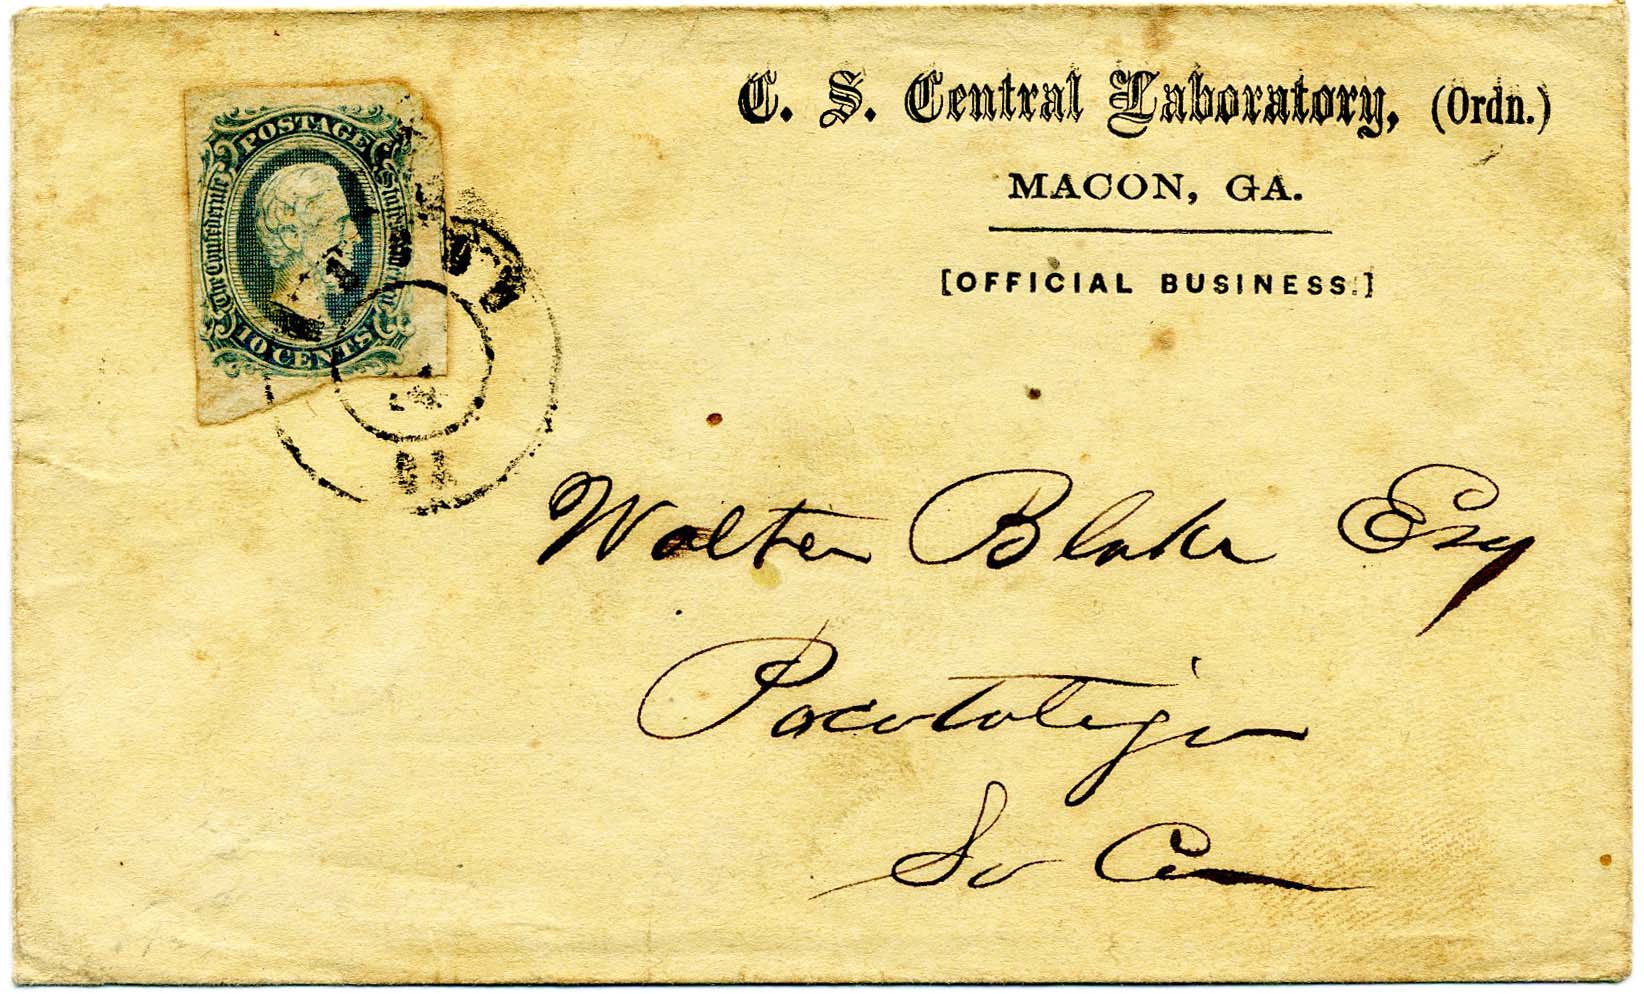 C. S. Central Laboratory, (Ordn.)
MACON, GA.
[OFFICIAL BUSINESS.]
POSTAGE
The Confederate States of America
10 CENTS
GA
Walter Blake Esq
Pocotaligo
So Ca